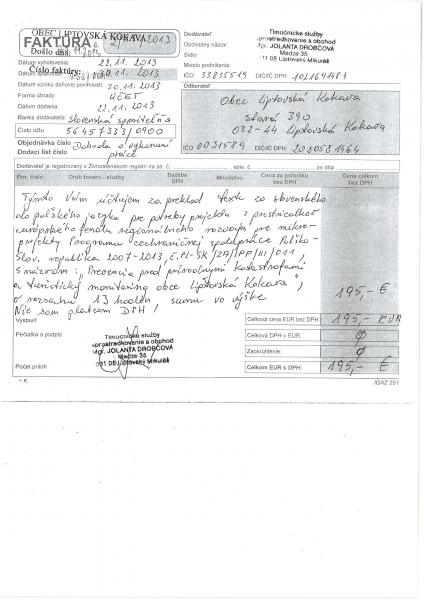 OBEC LIPTOVSKÁ KOKAVA
FAKTÚRA č. 21/2013
Došlo dňa:
Dátum vyhotovenia: 22.11.2013
Číslo faktúry:
30.11.2013
Dátum vzniku daňovej povinnosti: 30.11.2013
Forma úhrady: ÚČET
Dátum dodania: 22.11.2013
Banka dodávateľa: Slovenská sporiteľňa
Číslo účtu 564573331/0900
Objednávka číslo Dohoda o vykonaní
Dodací list číslo práce
Dodávateľ
Obchodný názov:
Sídlo:
Miesto podnikania:
Timočnícke služby
sprostredkovanie a obchod
Mgr. JOLANTA DROBČOVÁ
Medze 35
031 05 Liptovský Mikuláš
IČO 33835519 DIČ/IČ DPH 1021691484
Odberateľ
Obec Liptovská Kokava
Stará 390
032-44 Liptovská Kokava
IČO 0031589 DIČ/IČ DPH 2020581464
Dodávateľ je registrovaný v Živnostenskom registri na str. č.: spis. č.
Por. číslo Druh tovaru - služby Sadzba DPH Množstvo Cena za jednotku bez DPH Cena celkom bez DPH
Týmto Vám účtujem za preklad textu zo slovenského
do poľského jazyka pre potreby projektu z prostriedkov
európskeho fondu regionálneho rozvoja pre mikro-
projekty Programu cezhraničnej spolupráce Poľsko-
Slov. republika 2007-2013, č. PL-SK/ZA/IPP/III/011,
s názvom: "Prevencia pred prírodnými katastrofami
a turistický monitoring obce Liptovská Kokava",
v rozsahu 13 hodín sumu vo výške 195,- €
Nie som platcom DPH!
Celková cena EUR bez DPH: 195,- EUR
Vystavil:
Celková DPH v EUR: Ø
Pečiatka a podpis
Timočnícke služby
sprostredkovanie a obchod
Mgr. JOLANTA DROBČOVÁ
Medze 35
031 05 Liptovský Mikuláš
Zaokrúhlenie: Ø
Počet príloh
Celkom EUR s DPH: 195,- €
• K
IGAZ 251